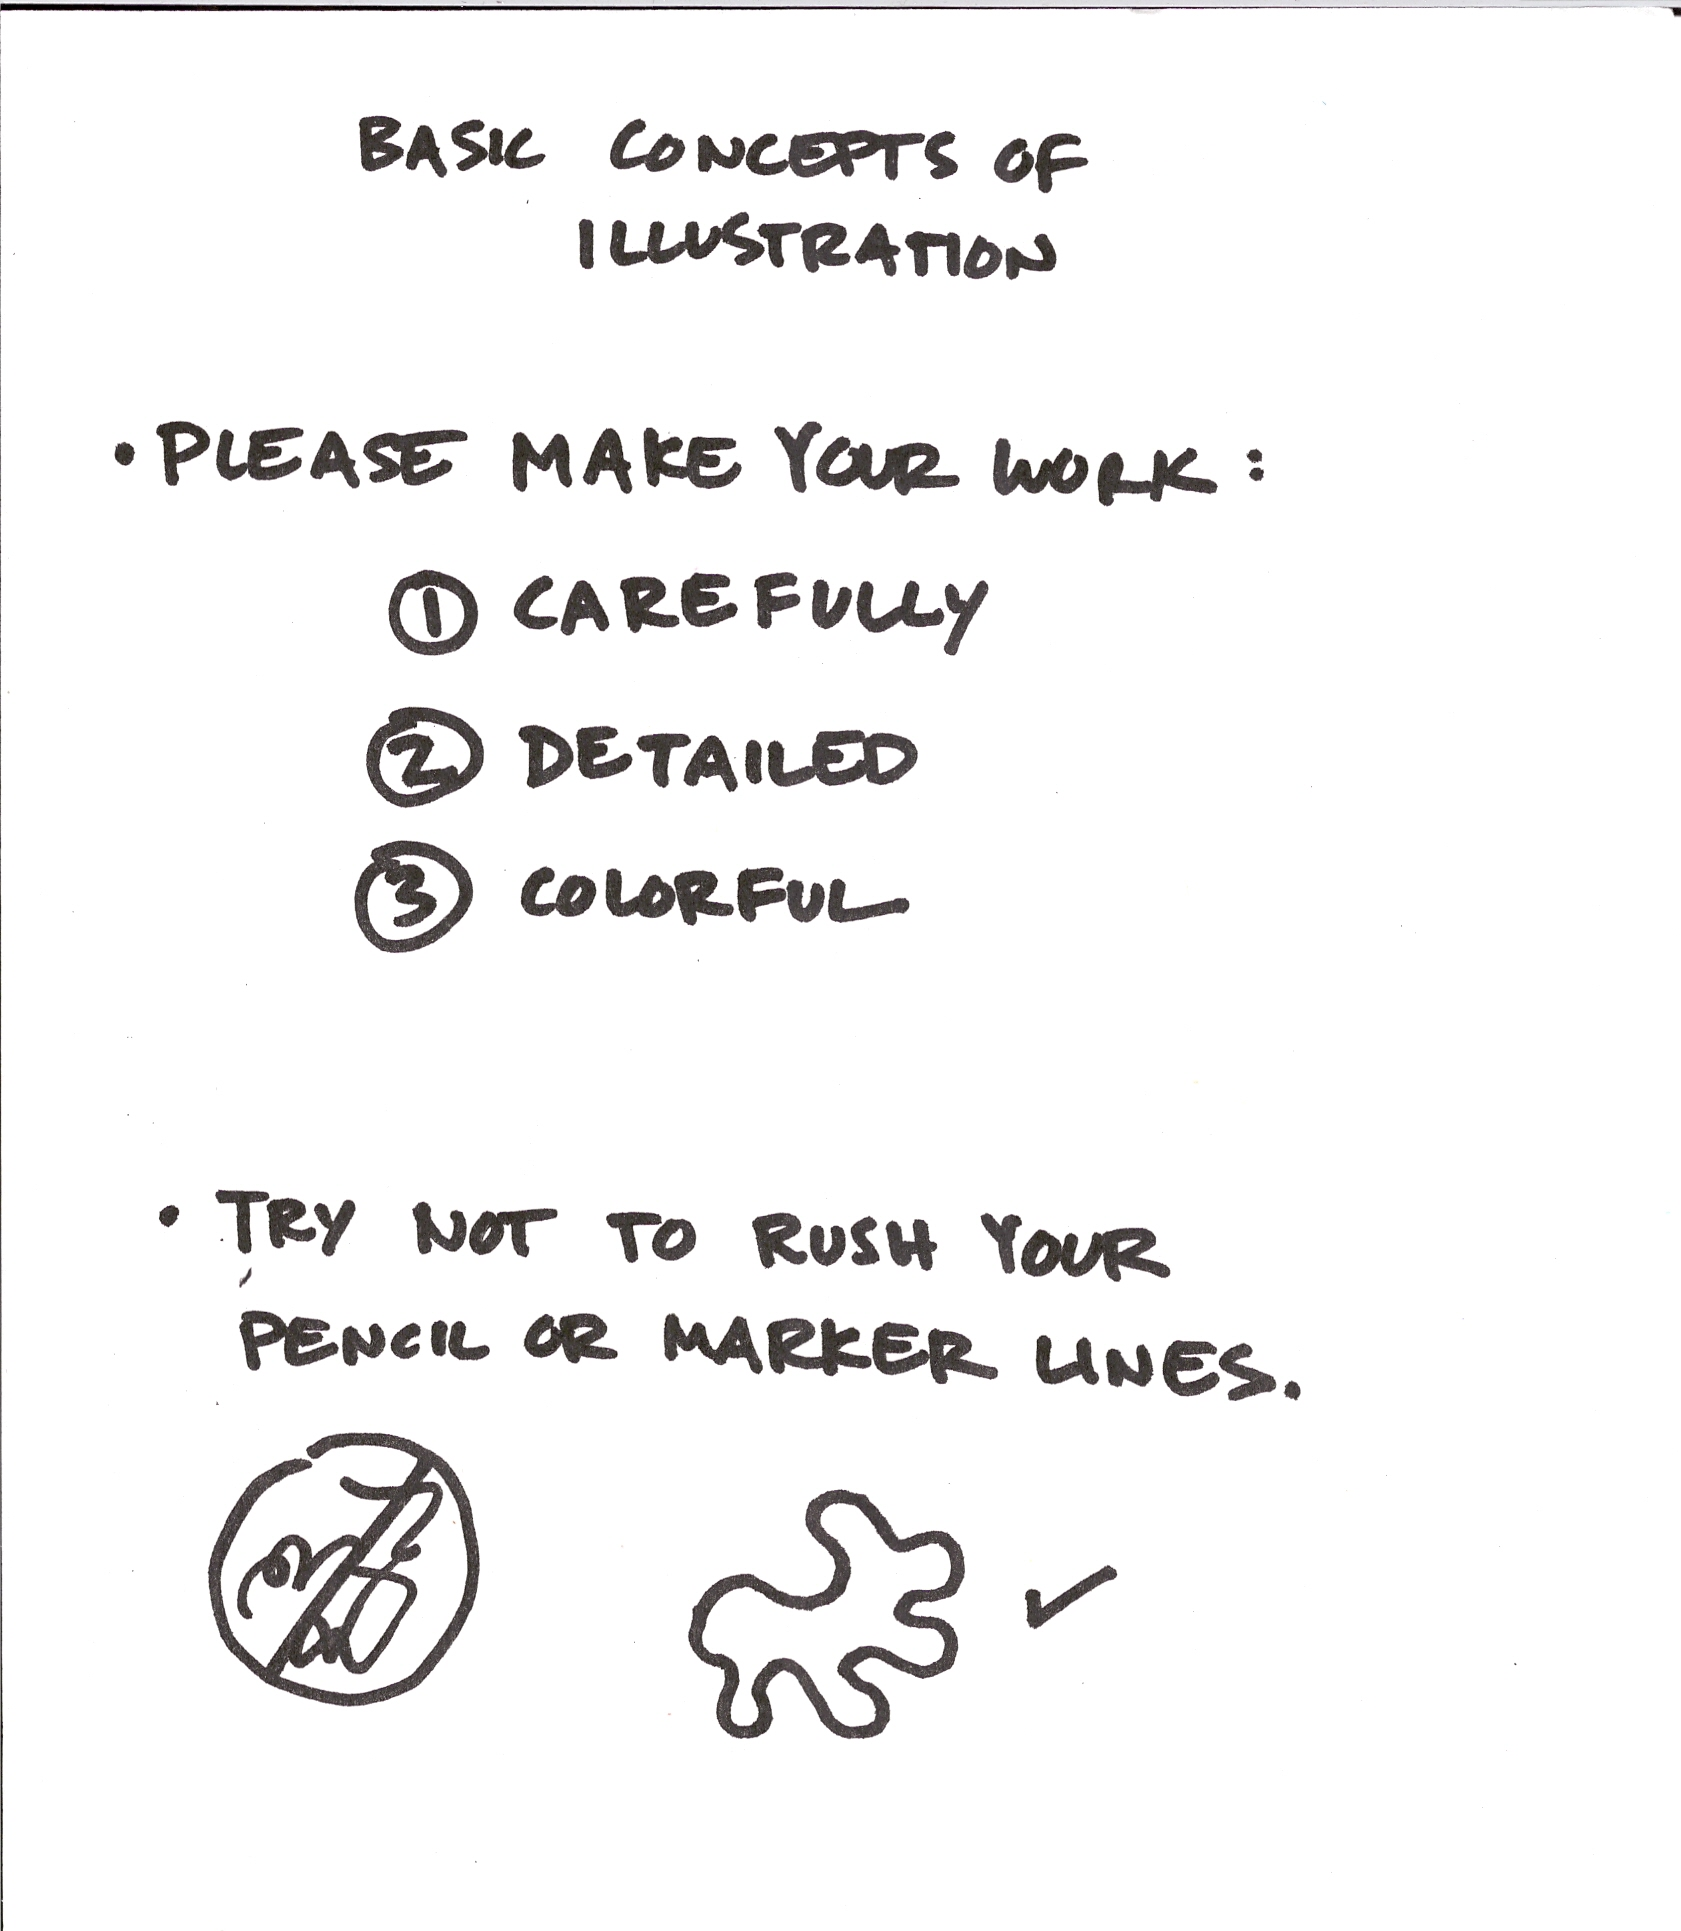 BASIC CONCEPTS OF
ILLUSTRATION
• PLEASE MAKE YOUR WORK:
① CAREFULLY
② DETAILED
③ COLORFUL
• TRY NOT TO RUSH YOUR
PENCIL OR MARKER LINES.